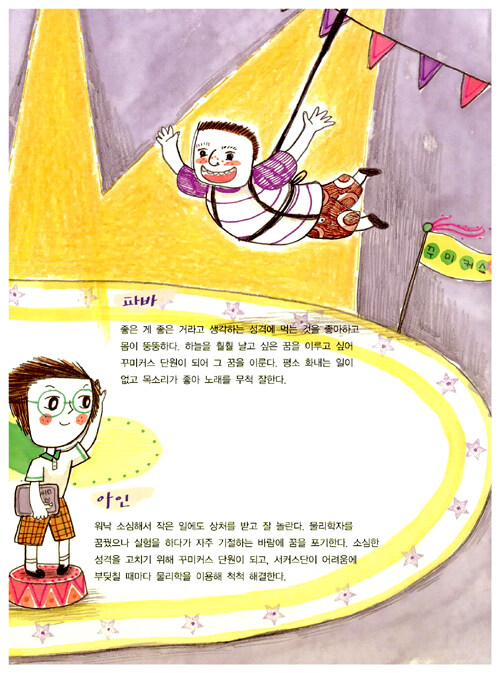 꾸미커스
파바
좋은 게 좋은 거라고 생각하는 성격에 먹는 것을 좋아하고
몸이 뚱뚱하다. 하늘을 훨훨 날고 싶은 꿈을 이루고 싶어
꾸미커스 단원이 되어 그 꿈을 이룬다. 평소 화내는 일이
없고 목소리가 좋아 노래를 무척 잘한다.
아인
워낙 소심해서 작은 일에도 상처를 받고 잘 놀란다. 물리학자를
꿈꿨으나 실험을 하다가 자주 기절하는 바람에 꿈을 포기한다. 소심한
성격을 고치기 위해 꾸미커스 단원이 되고, 서커스단이 어려움에
부딪칠 때마다 물리학을 이용해 척척 해결한다.